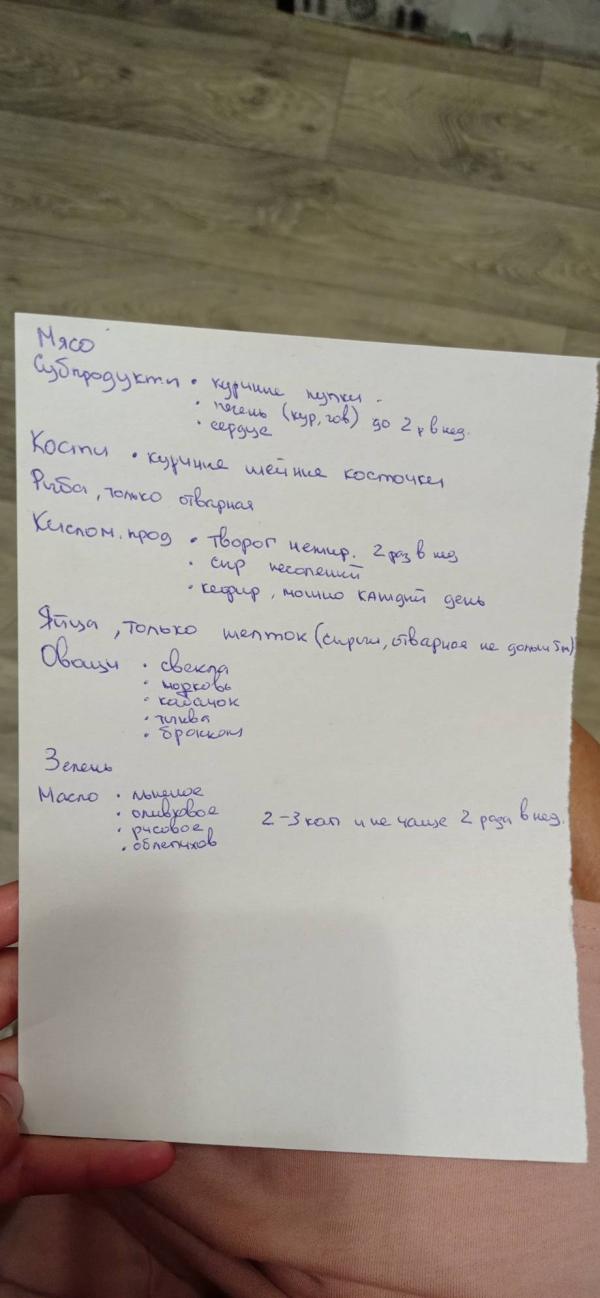 Мясо
Субпродукты • куриние пупки.
• печень (кур, гов) до 2 р в нед.
• сердце
Кости • куриние шейние косточки
Риба, только отварная
Кислом. прод • творог нежир. 2 раз в нед
• сир несолений
• кефир, можно каждий день
Яйца, только желток (сирий, отварная не дольш 5м)
Овощи • свекла
• морковь
• кабачок
• тиква
• броккол
Зелень
Масло • льненое
• оливковое 2-3 кап и не чаще 2 рази в нед.
• рисовое
• облепихов